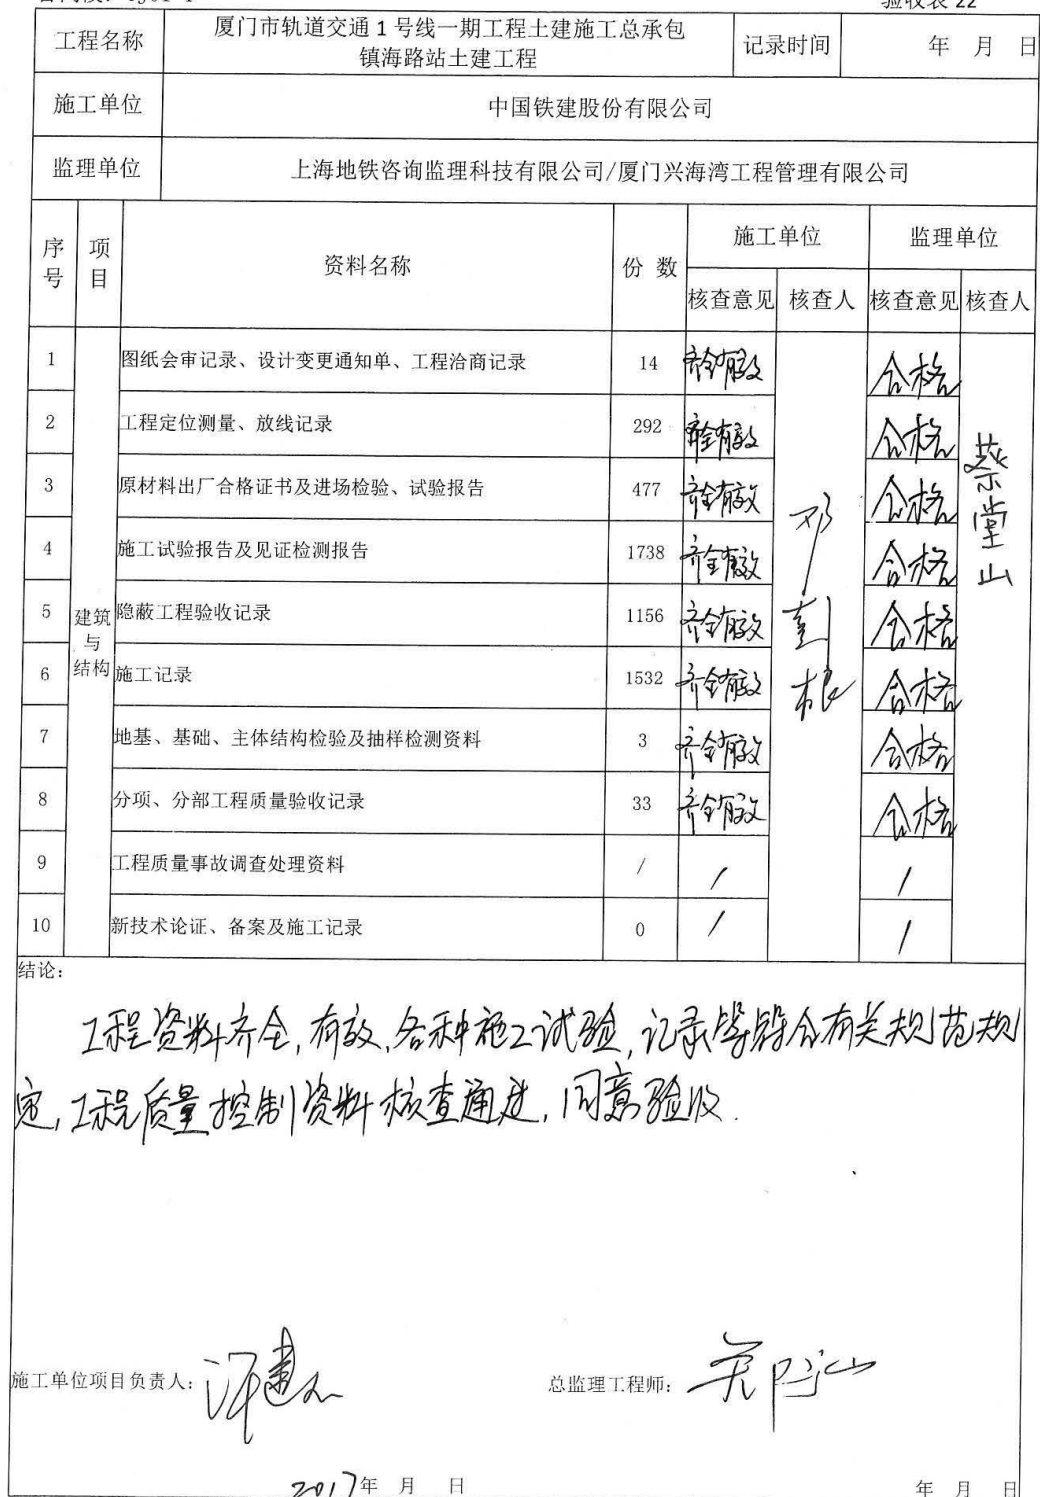 验收表 22
工程名称 厦门市轨道交通 1 号线一期工程土建施工总承包 记录时间 年 月 日
镇海路站土建工程
施工单位 中国铁建股份有限公司
监理单位 上海地铁咨询监理科技有限公司/厦门兴海湾工程管理有限公司
序号 项目 资料名称 份数 施工单位 监理单位
核查意见 核查人 核查意见 核查人
1 图纸会审记录、设计变更通知单、工程洽商记录 14 齐全有效 合格
2 工程定位测量、放线记录 292 齐全有效 合格
3 原材料出厂合格证书及进场检验、试验报告 477 齐全有效 合格
4 施工试验报告及见证检测报告 1738 齐全有效 合格
5 隐蔽工程验收记录 1156 齐全有效 合格
建筑与结构
6 施工记录 1532 齐全有效 合格
7 地基、基础、主体结构检验及抽样检测资料 3 齐全有效 合格
8 分项、分部工程质量验收记录 33 齐全有效 合格
9 工程质量事故调查处理资料 / / /
10 新技术论证、备案及施工记录 0 / /
结论：
工程资料齐全,有效,各种施工试验,记录等符合有关规范规
定,工程质量控制资料核查通过,同意验收.
施工单位项目负责人： 总监理工程师：
2017年 月 日 年 月 日